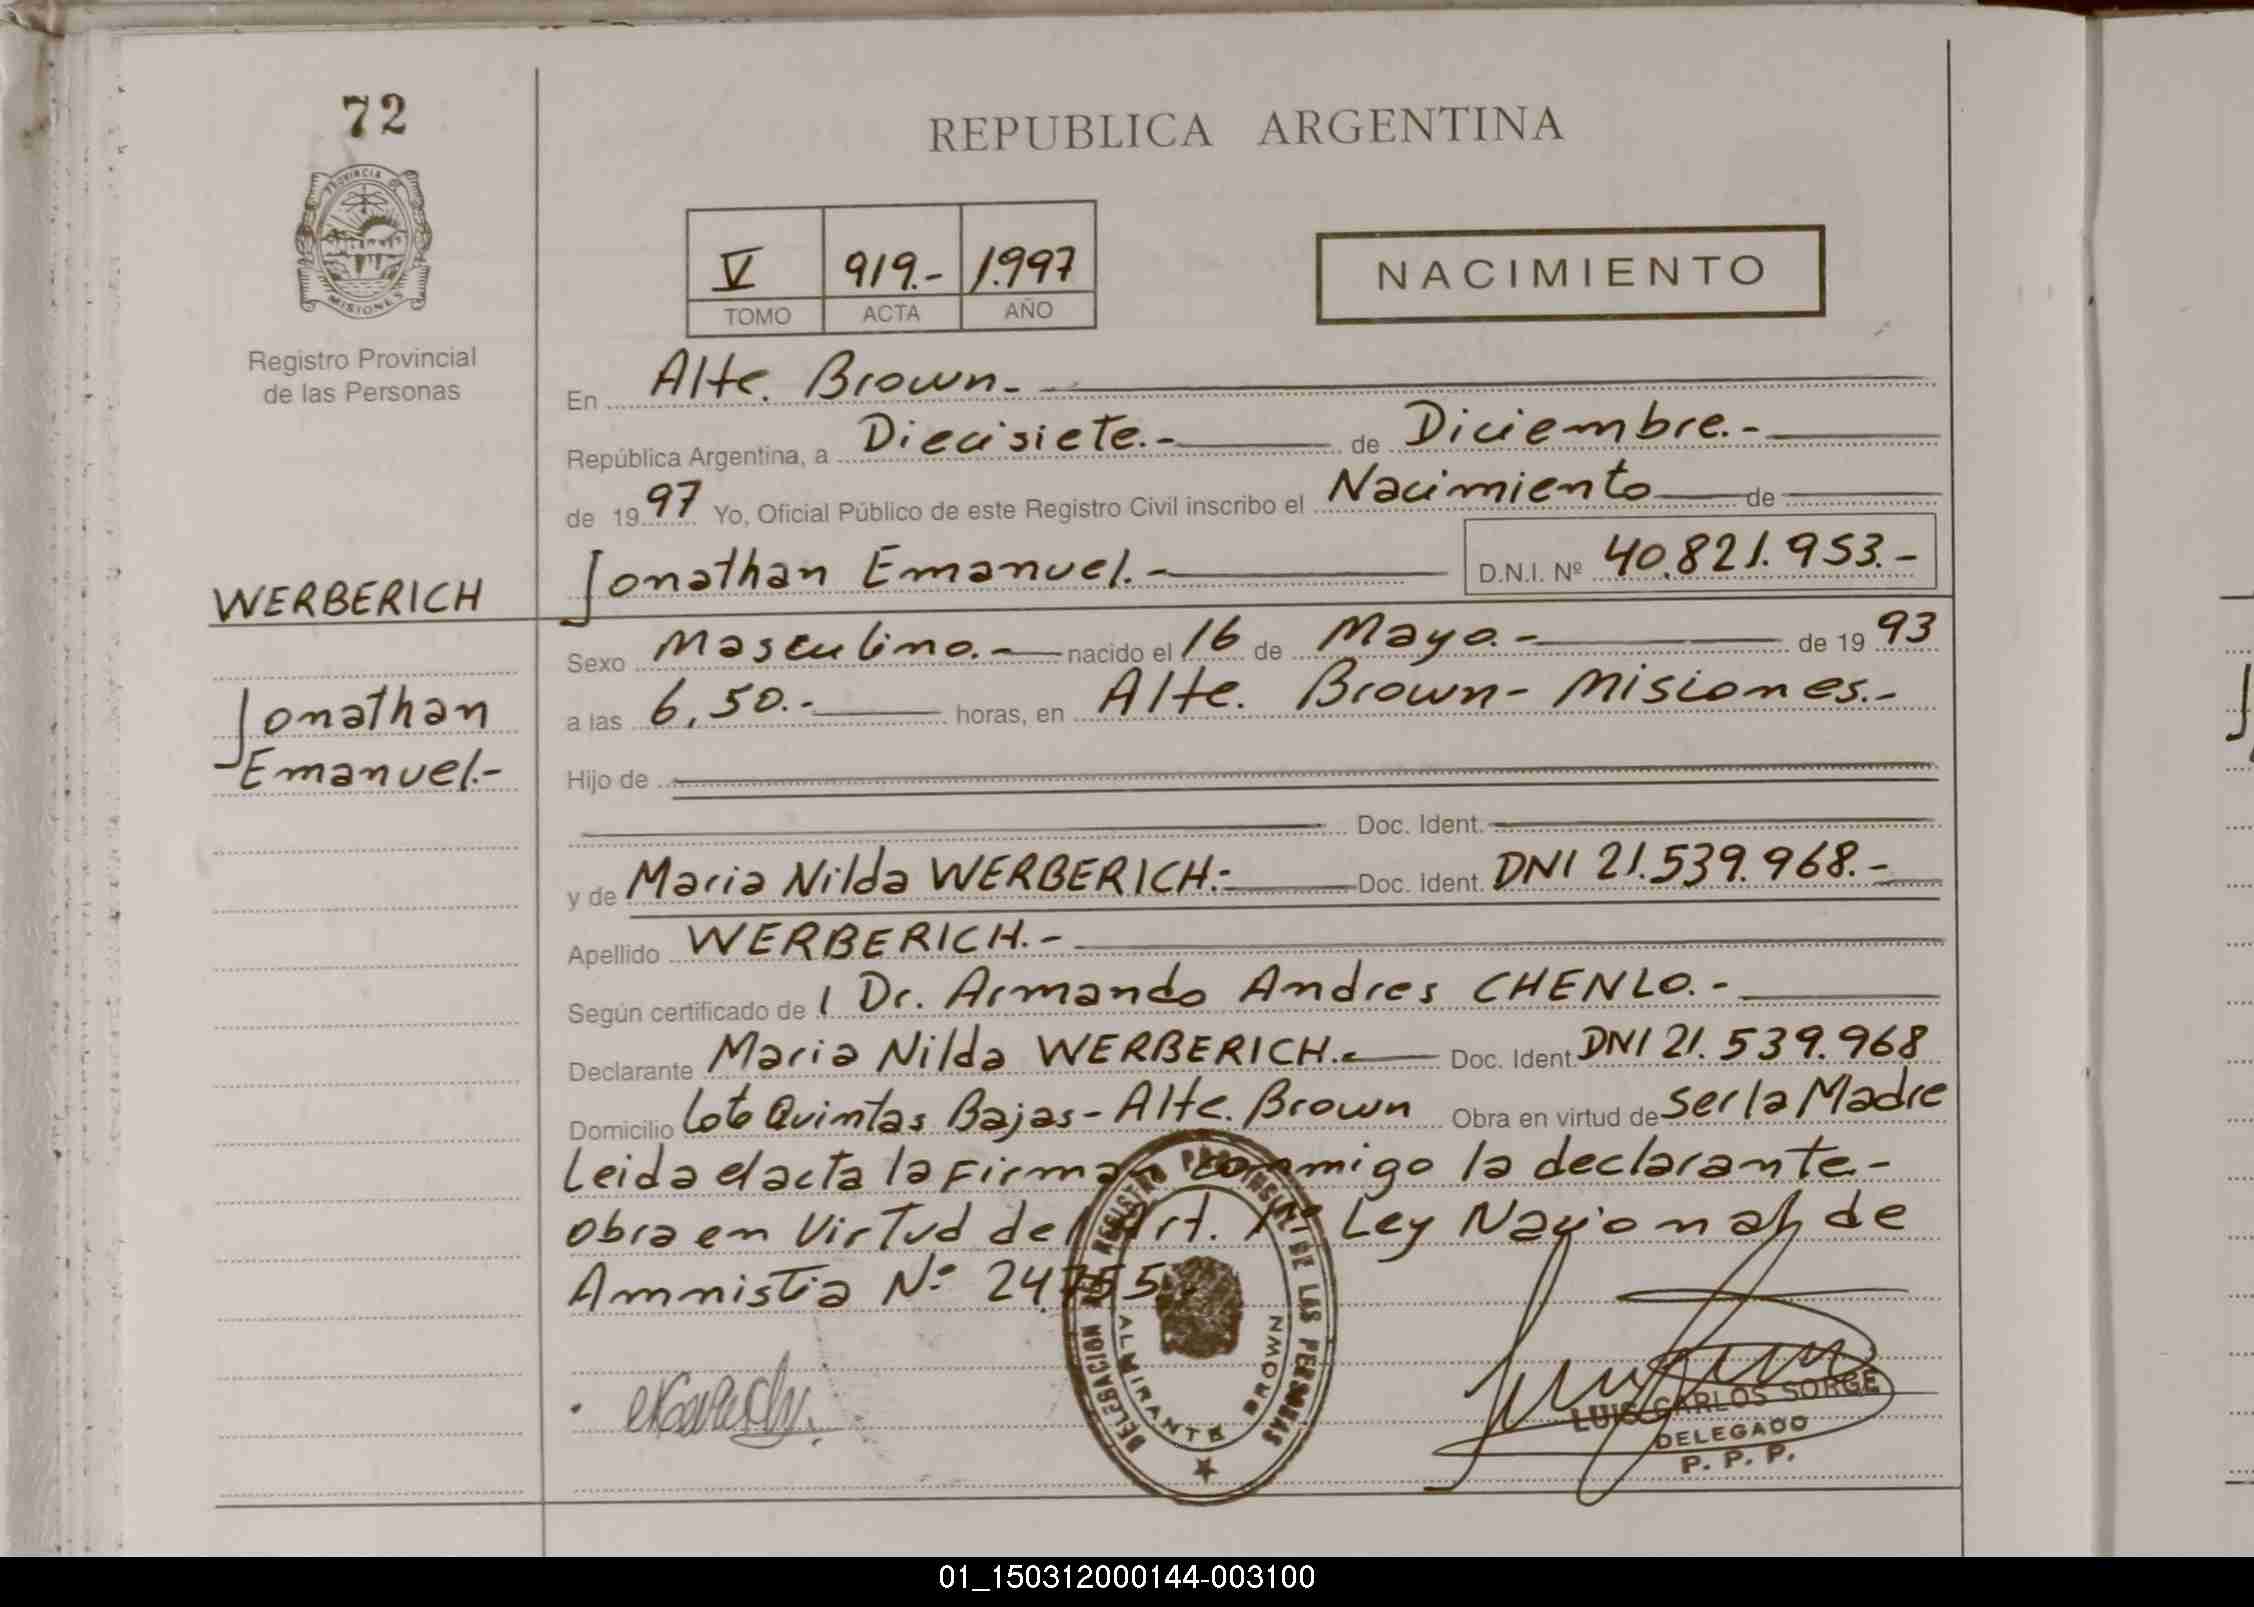 72
REPUBLICA ARGENTINA
PROVINCIA DE
MISIONES
Registro Provincial
de las Personas
V 919.- 1.997
TOMO ACTA AÑO
NACIMIENTO
En Alte. Brown.-
República Argentina, a Diecisiete.- de Diciembre.-
de 1997 Yo, Oficial Público de este Registro Civil inscribo el Nacimiento de
WERBERICH
Jonathan Emanuel.- D.N.I. Nº 40.821.953.-
Sexo Masculino.- nacido el 16 de Mayo.- de 1993
Jonathan
a las 6,50.- horas, en Alte. Brown- Misiones.-
Emanuel.-
Hijo de
Doc. Ident.
y de Maria Nilda WERBERICH.- Doc. Ident. DNI 21.539.968.-
Apellido WERBERICH.-
Según certificado de l Dr. Armando Andres CHENLO.-
Declarante Maria Nilda WERBERICH.- Doc. Ident. DNI 21.539.968
Domicilio Lote Quintas Bajas- Alte. Brown Obra en virtud de ser la Madre
Leida el acta la Firman conmigo la declarante.-
Obra en Virtud del Art. 1º Ley Nacional de
Amnistia Nº 24.755.
DELEGACION DEL REGISTRO PROVINCIAL DE LAS PERSONAS
ALMIRANTE BROWN
LUIS CARLOS SORGE
DELEGADO
P. P. P.
01_150312000144-003100